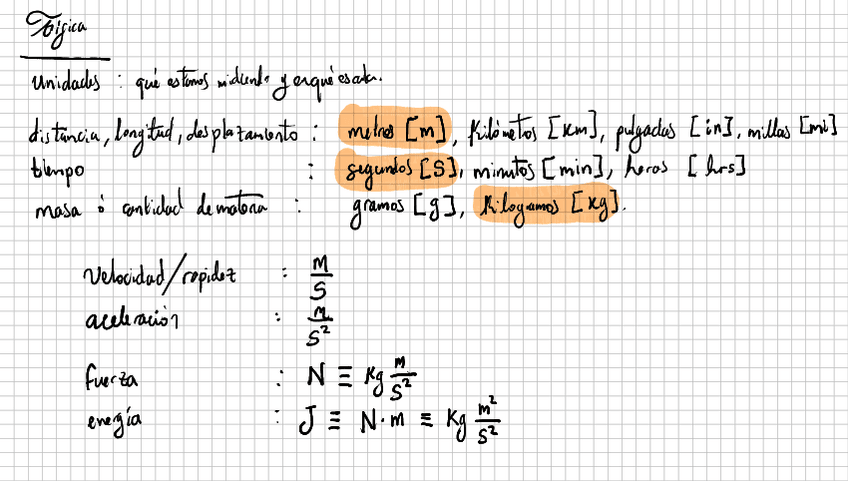 Física
Unidades : qué estamos midiendo y en qué escala.
distancia, longitud, desplazamiento : metros [m], kilómetros [km], pulgadas [in], millas [mi]
tiempo : segundos [S], minutos [min], horas [hrs]
masa ó cantidad de materia : gramos [g], kilogramos [kg].
Velocidad/rapidez : M/S
aceleración : M/S²
fuerza : N ≡ Kg m/S²
energía : J ≡ N·m ≡ Kg m²/S²